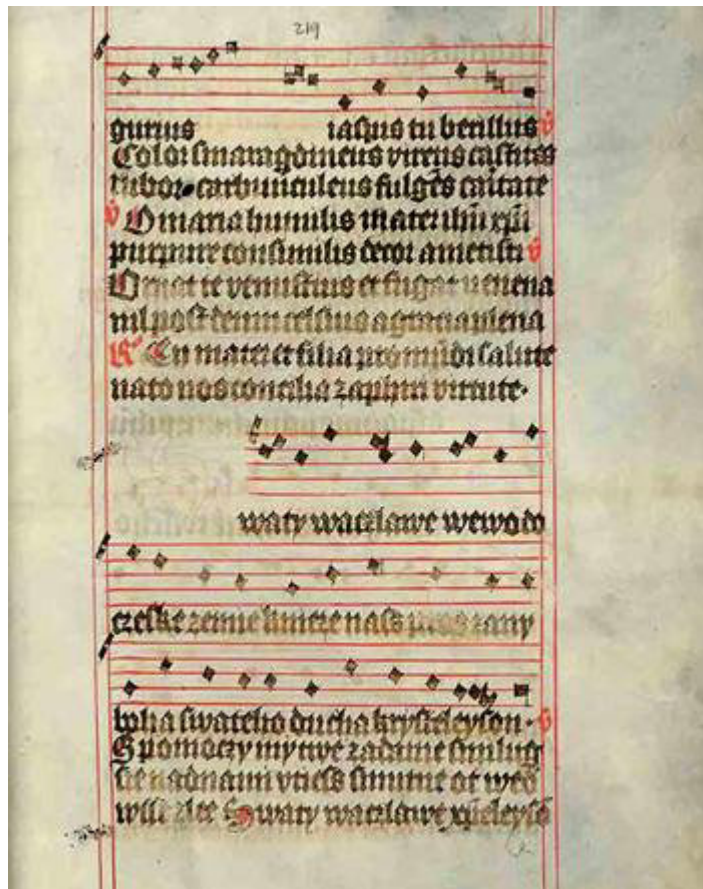 219
gurius iaspus tu berillus v
Color smaragdineus virens castitas
rubor carbunculeus fulgēs caritate
v O maria humilis mater ihū xpi
purpure consimilis decor ametisti v
Ornat te venustius et fugat venena
nil post deum celsius a gratia plena
R Tu mater et filia
nato nos concilia
waty waczlawe wewodo
czeske zemie knieze nass pros za ny
boha swateho ducha krysteleyson v
Spomoczy my twe zadame smilug
sie nad nami vtiess smutne ot wed
wssie zlee Swaty waczlawe xpēleysō